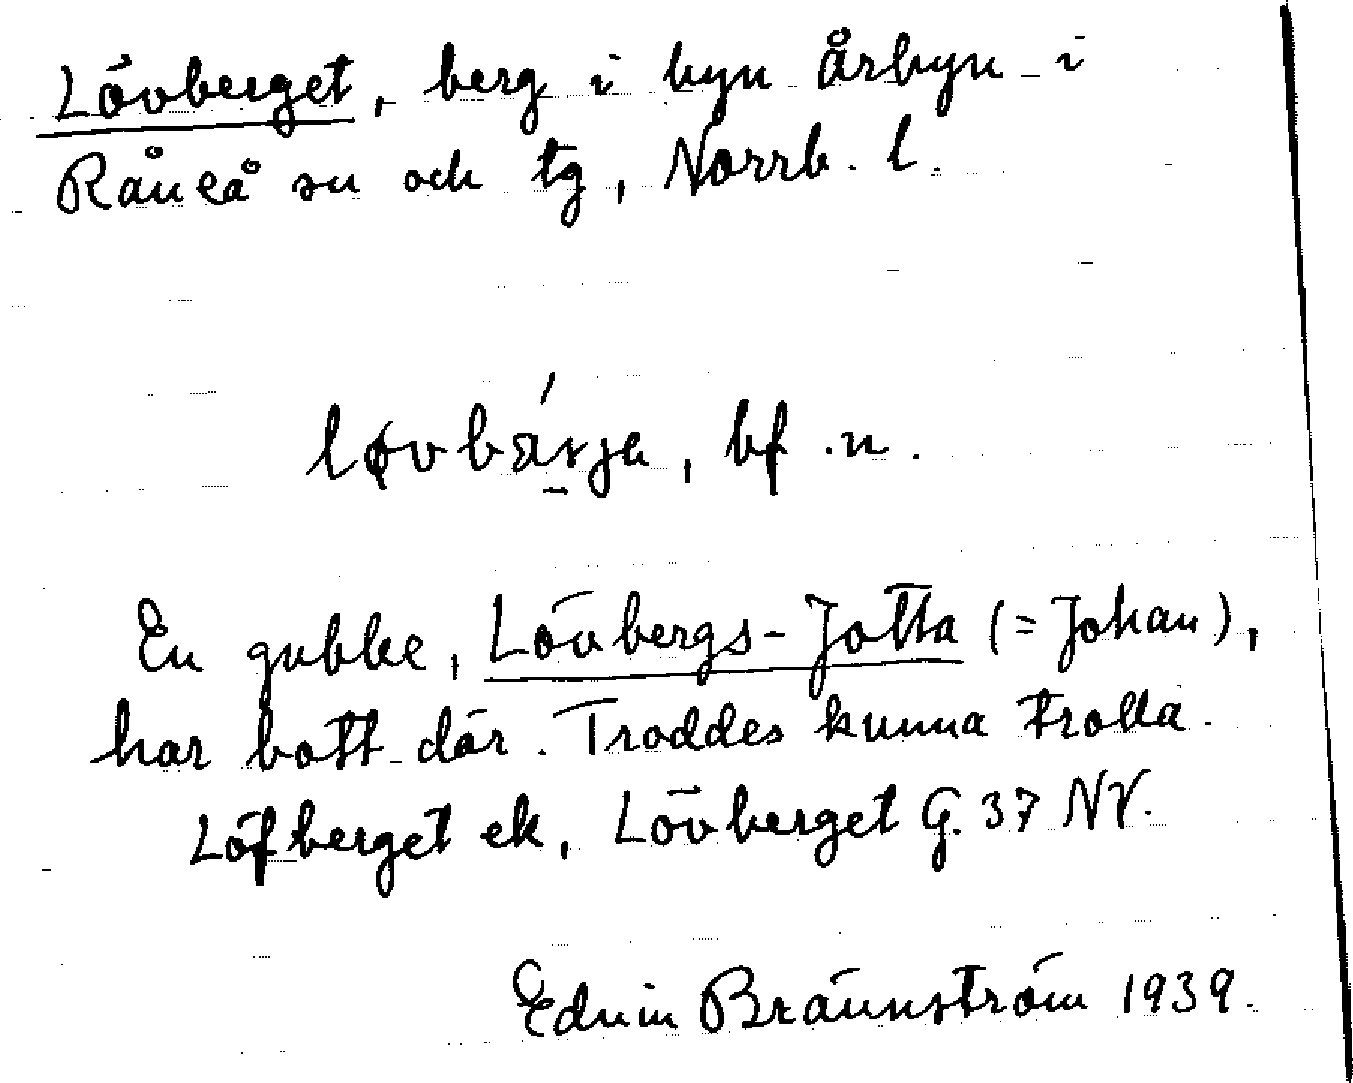 Lövberget, berg i byn Årbyn i
Råneå sn och tg, Norrb. l.
bf. n.
En gubbe, Lövbergs-Jotta (= Johan),
har bott där. Troddes kunna trolla.
Löfberget ek, Lövberget G. 37 NV.
Edvin Brännström 1939.